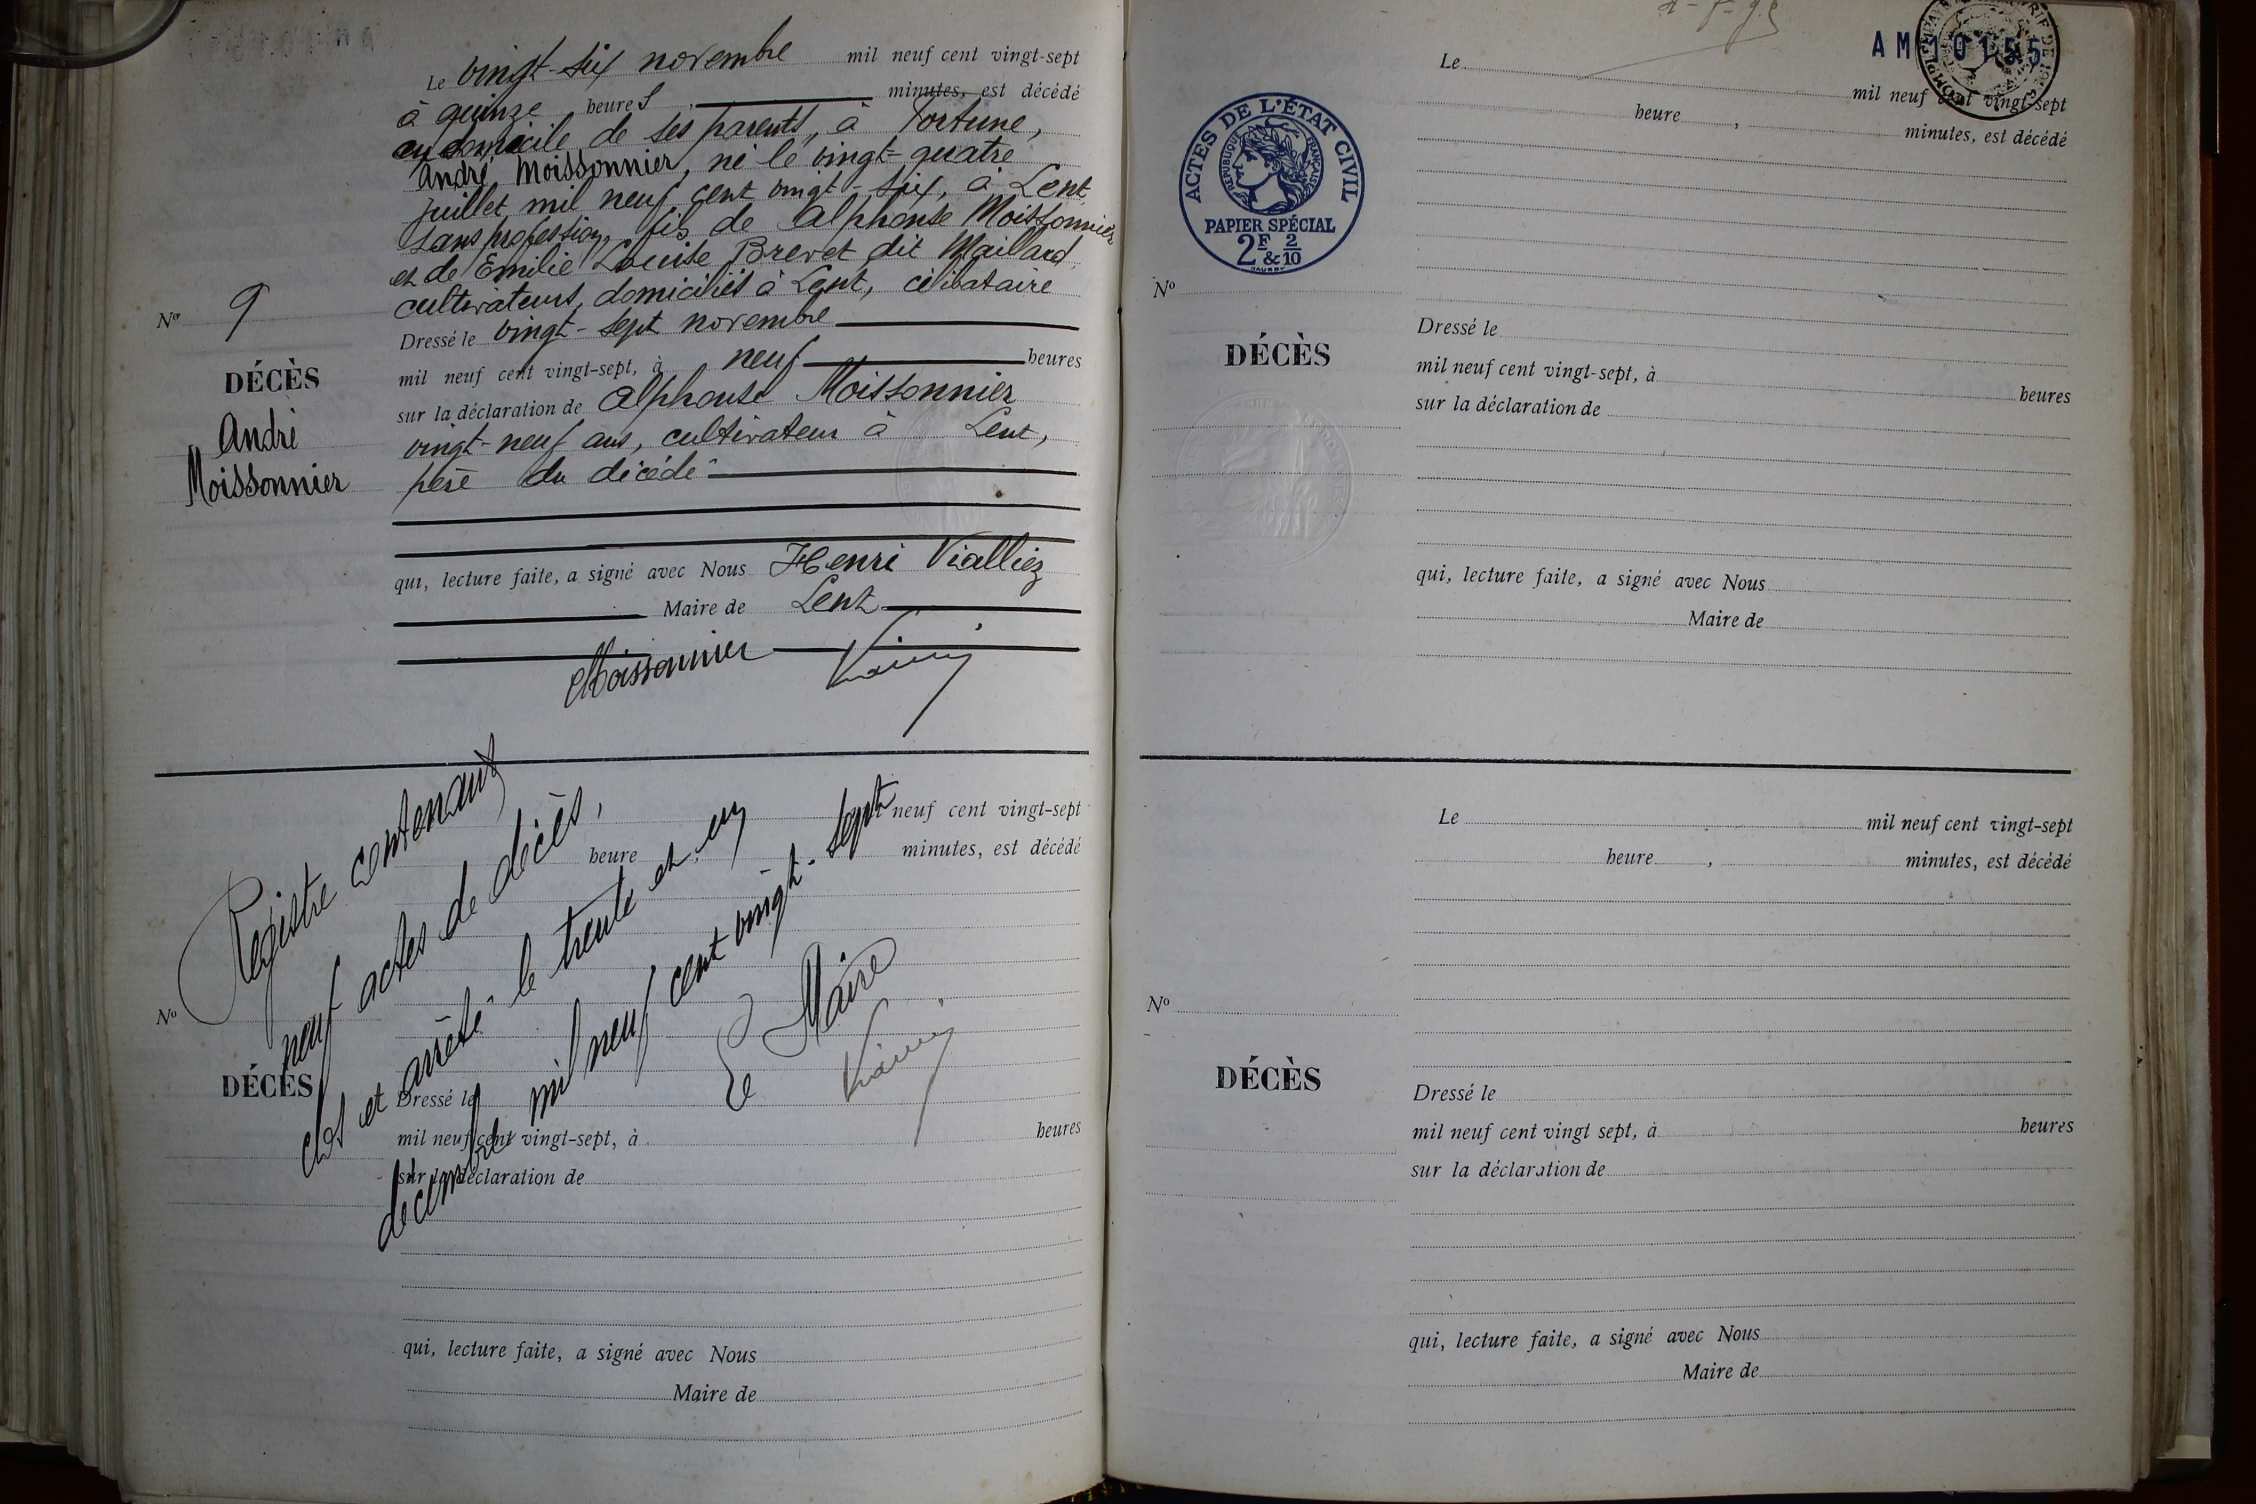 Le vingt-six novembre mil neuf cent vingt-sept
à quinze heures, minutes, est décédé
au domicile de ses parents, à Fortune,
André Moissonnier, né le vingt-quatre
juillet mil neuf cent vingt-six, à Lent
sans profession, fils de Alphonse Moissonnier
et de Emilie Louise Brevet dit Maillard,
cultivateurs, domiciliés à Lent, célibataire
Dressé le vingt-sept novembre
mil neuf cent vingt-sept, à neuf heures
sur la déclaration de Alphonse Moissonnier
vingt-neuf ans, cultivateur à Lent,
père du décédé
qui, lecture faite, a signé avec Nous Henri Vialliez
Maire de Lent
Moissonnier
No 9
DÉCÈS
André
Moissonnier
Registre contenant
neuf actes de décès,
clos et arrêté le trente et un
décembre mil neuf cent vingt-sept
Le Maire
neuf cent vingt-sept
heure minutes, est décédé
No
DÉCÈS
Dressé le
mil neuf cent vingt-sept, à heures
sur la déclaration de
qui, lecture faite, a signé avec Nous
Maire de
AM 10155
ACTES DE L'ÉTAT CIVIL
RÉPUBLIQUE FRANÇAISE
PAPIER SPÉCIAL
2F & 2/10
Le mil neuf cent vingt-sept
heure , minutes, est décédé
No
DÉCÈS
Dressé le
mil neuf cent vingt-sept, à heures
sur la déclaration de
qui, lecture faite, a signé avec Nous
Maire de
Le mil neuf cent vingt-sept
heure , minutes, est décédé
No
DÉCÈS
Dressé le
mil neuf cent vingt sept, à heures
sur la déclaration de
qui, lecture faite, a signé avec Nous
Maire de